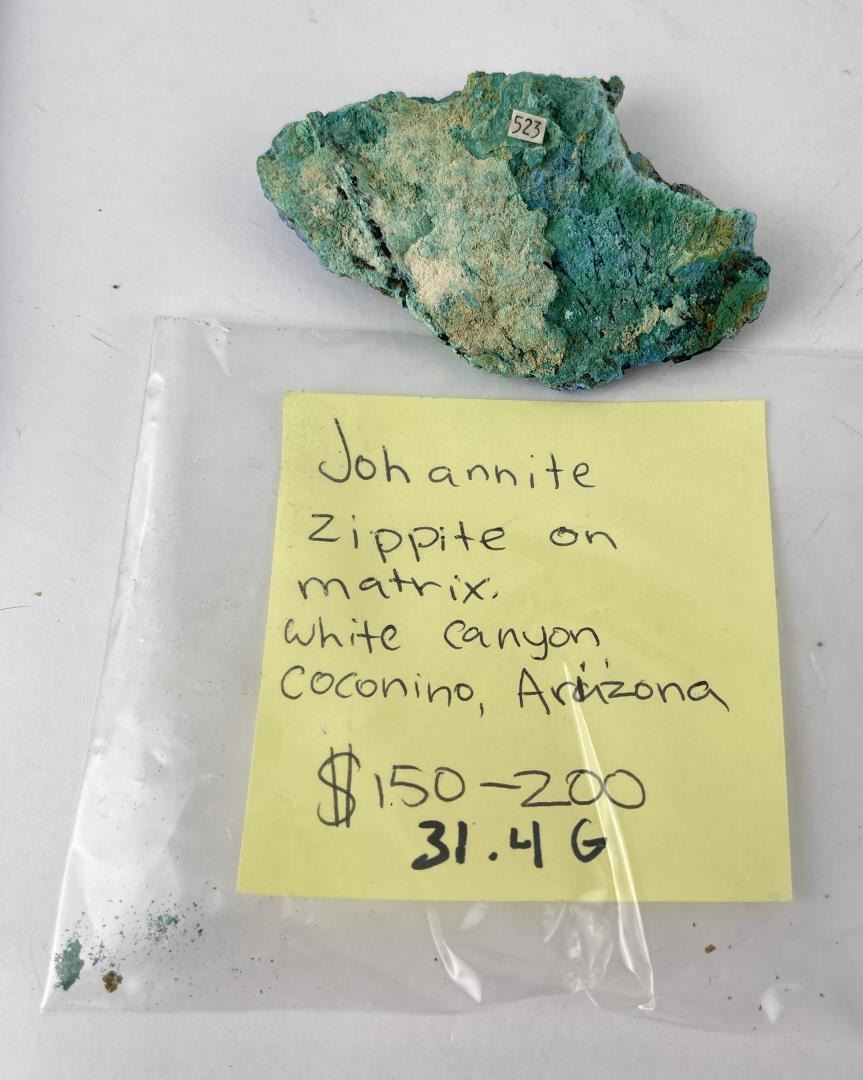 523
Johannite
Zippite on
matrix.
white canyon
Coconino, Arizona
$150-200
31.4 G